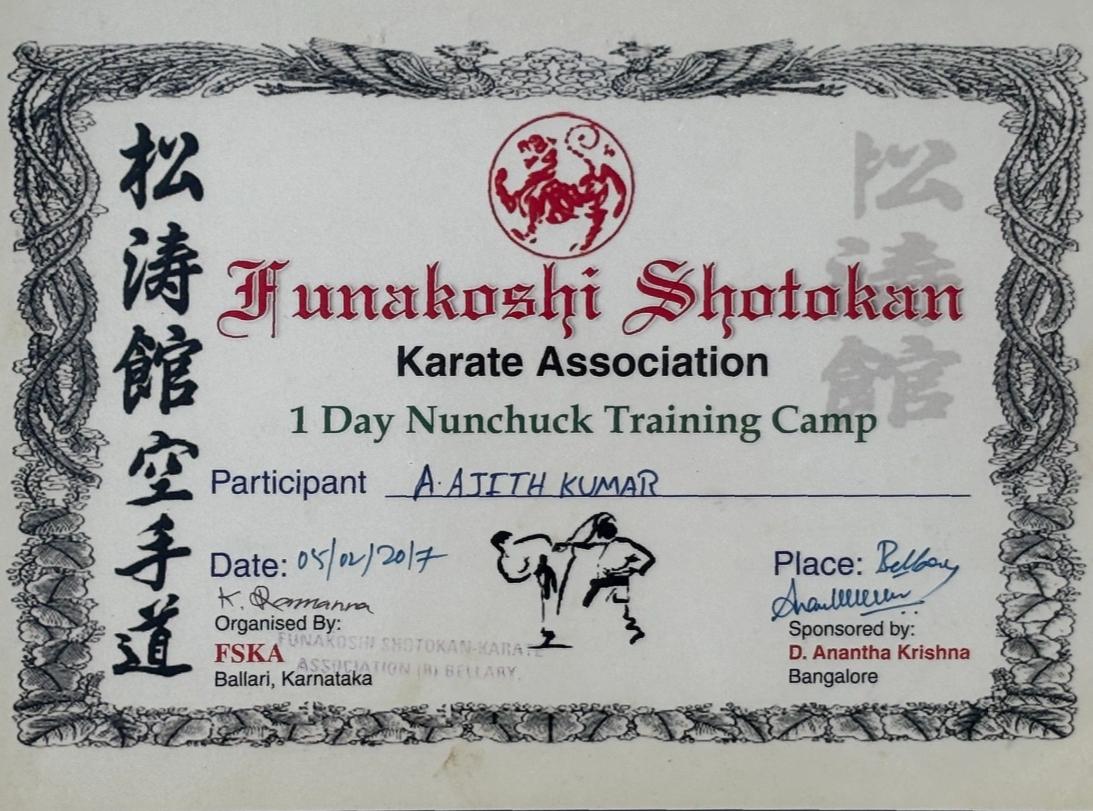 松涛館空手道
松涛館
Funakoshi Shotokan
Karate Association
1 Day Nunchuck Training Camp
Participant A. AJITH KUMAR
Date: 05/02/2017
Place: Bellary
K. Ramanna
Organised By:
FSKA
Ballari, Karnataka
FUNAKOSHI SHOTOKAN-KARATE
ASSOCIATION (R) BELLARY.
Sponsored by:
D. Anantha Krishna
Bangalore